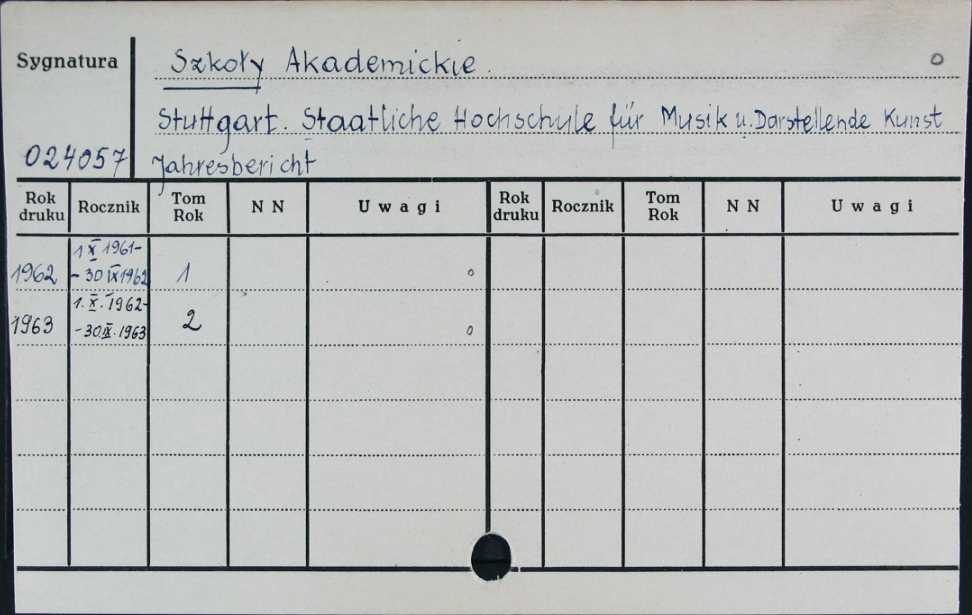 Sygnatura
Szkoły Akademickie.
o
Stuttgart. Staatliche Hochschule für Musik u. Darstellende Kunst
024057
Jahresbericht
Rok druku Rocznik Tom Rok N N Uwagi Rok druku Rocznik Tom Rok N N Uwagi
1962 1 X 1961- - 30 IX 1962 1 o
1963 1. X. 1962- - 30 IX. 1963 2 o